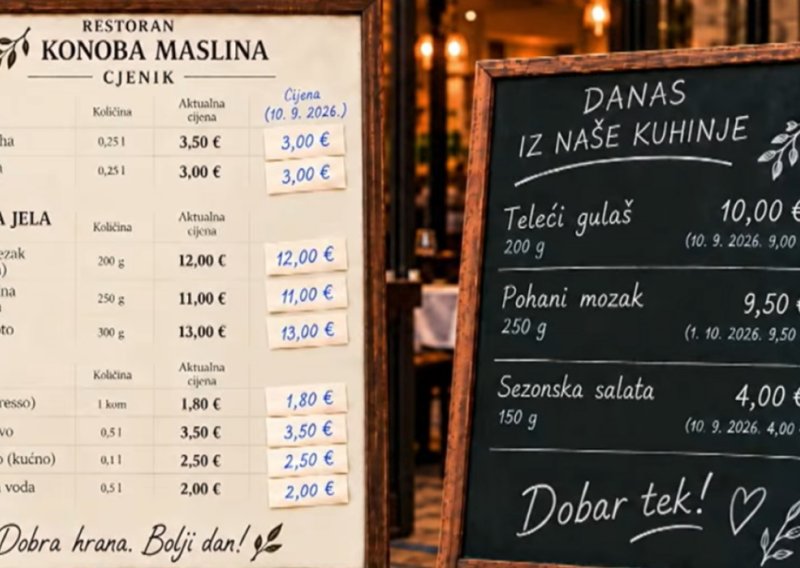 RESTORAN
KONOBA MASLINA
CJENIK
Količina Aktualna cijena Cijena (10. 9. 2026.)
0,25 l 3,50 € 3,00 €
0,25 l 3,00 € 3,00 €
JELA Količina Aktualna cijena
200 g 12,00 € 12,00 €
250 g 11,00 € 11,00 €
300 g 13,00 € 13,00 €
Količina Aktualna cijena
1 kom 1,80 € 1,80 €
0,5 l 3,50 € 3,50 €
(kućno) 0,1 l 2,50 € 2,50 €
voda 0,5 l 2,00 € 2,00 €
Dobra hrana. Bolji dan!
DANAS
IZ NAŠE KUHINJE
Teleći gulaš 10,00 €
200 g (10. 9. 2026. 9,00
Pohani mozak 9,50 €
250 g (1. 10. 2026. 9,50
Sezonska salata 4,00 €
150 g (10. 9. 2026. 4,00
Dobar tek!